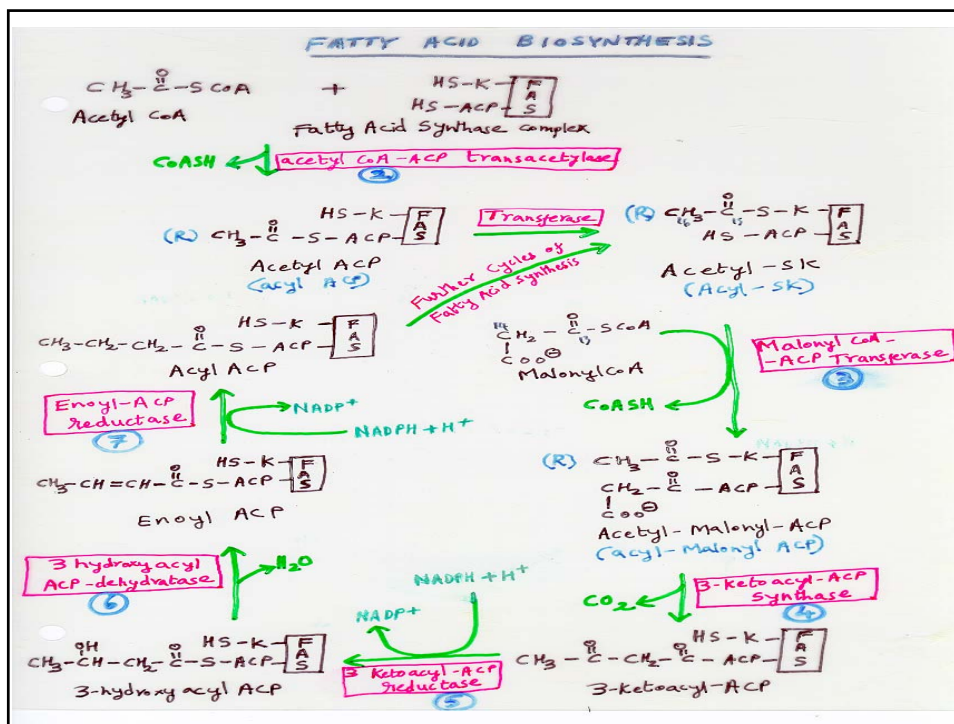 FATTY ACID BIOSYNTHESIS
CH3-C-SCOA + HS-K FAS
O
HS-ACP
Acetyl CoA
Fatty Acid Synthase complex
CoASH
acetyl CoA-ACP transacetylase
2
HS-K FAS
(R) CH3-C-S-ACP
O
Acetyl ACP
(acyl ACP)
Transferase
(R) CH3-C-S-K FAS
O
16 15
HS-ACP
Acetyl-SK
(Acyl-SK)
Further cycles of
Fatty Acid Synthesis
HS-K FAS
CH3-CH2-CH2-C-S-ACP
O
Acyl ACP
14
CH2-C-SCOA
O
13
COO⊖
Malonyl CoA
Malonyl CoA-
-ACP Transferase
3
CoASH
Enoyl-ACP
reductase
7
NADP+
NADPH + H+
HS-K FAS
CH3-CH=CH-C-S-ACP
O
Enoyl ACP
(R) CH3-C-S-K FAS
O
CH2-C-ACP
O
COO⊖
Acetyl-Malonyl-ACP
(acyl-Malonyl ACP)
3 hydroxy acyl
ACP-dehydratase
6
H2O
NADPH + H+
NADP+
CO2
3-Ketoacyl-ACP
Synthase
4
OH
HS-K FAS
CH3-CH-CH2-C-S-ACP
O
3-hydroxy acyl ACP
3 Ketoacyl-ACP
reductase
5
HS-K FAS
CH3-C-CH2-C-ACP
O O
3-Ketoacyl-ACP